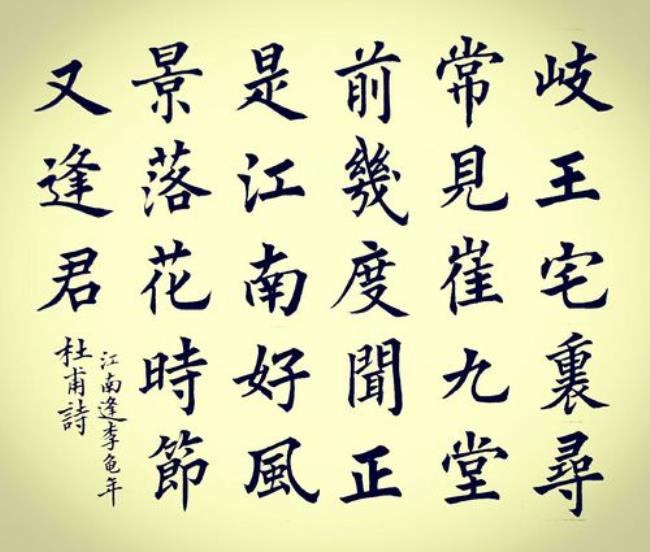 岐王宅裏尋
常見崔九堂
前幾度聞正
是江南好風
景落花時節
又逢君
江南逢李龟年
杜甫詩